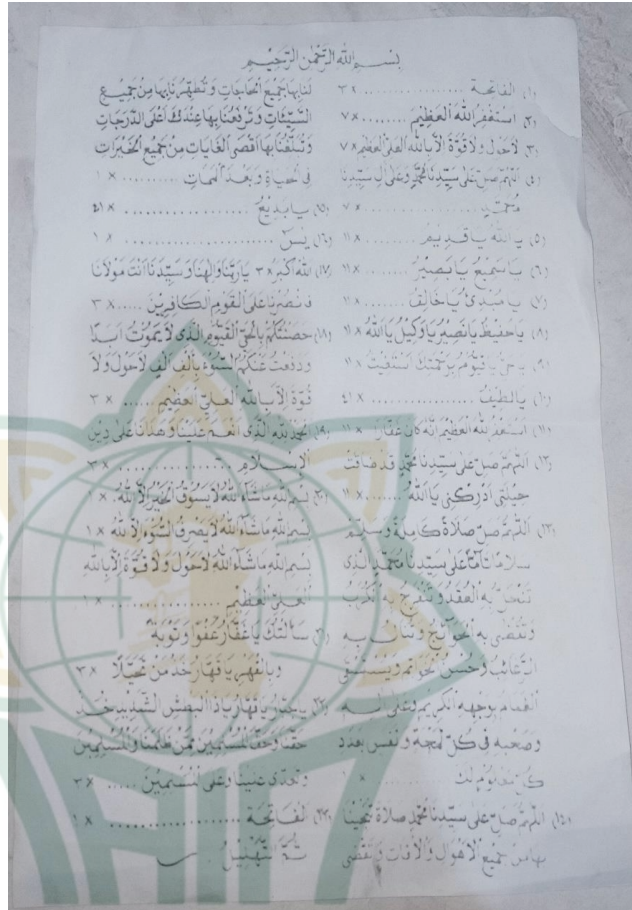 بِسْمِ اللهِ الرَّحْمٰنِ الرَّحِيْمِ
(١) الفاتحة ................ × ٣
(٢) استغفر الله العظيم ........ × ٧
(٣) لاحول ولا قوة الا بالله العلي العظيم × ٧
(٤) اللهم صل على سيدنا محمد وعلى ال سيدنا
محمد ............ × ٧
(٥) يا الله يا قديم ........ × ١١
(٦) يا سميع يا بصير ........ × ١١
(٧) يا مبدئ يا خالق ........ × ١١
(٨) يا حفيظ يا نصير يا وكيل يا الله × ١١
(٩) يا حي يا قيوم برحمتك استغيث × ١١
(١٠) يا لطيف ................ × ٤١
(١١) استغفر الله العظيم انه كان غفارا × ١١
(١٢) اللهم صل على سيدنا محمد قد ضاقت
حيلتي ادركني يا الله ...... × ١١
(١٣) اللهم صل صلاة كاملة وسلم
سلاما تاما على سيدنا محمد الذي
تنحل به العقد وتنفرج به الكرب
وتقضى به الحوائج وتنال به
الرغائب وحسن الخواتم ويستسقى
الغمام بوجهه الكريم وعلى اله
وصحبه في كل لمحة ونفس بعدد
كل معلوم لك ........ × ١
(١٤) اللهم صل على سيدنا محمد صلاة تنجينا
بها من جميع الاهوال والافات وتقضى
لنا بها جميع الحاجات وتطهرنا بها من جميع
السيئات وترفعنا بها عندك اعلى الدرجات
وتبلغنا بها اقصى الغايات من جميع الخيرات
في الحياة وبعد الممات .......... × ١
(١٥) يا بديع ................ × ٤١
(١٦) يس ................ × ١
(١٧) الله اكبر × ٣ يا ربنا والهنا وسيدنا انت مولانا
فانصرنا على القوم الكافرين ..... × ٣
(١٨) حصنتكم بالحي القيوم الذي لا يموت ابدا
ودفعت عنكم السوء بألف ألف لا حول ولا
قوة الا بالله العلي العظيم ..... × ٣
(١٩) الحمد لله الذى انعم علينا وهدانا على دين
الإسلام ................ × ٣
(٢٠) بسم الله ما شآء الله لا يسوق الخير إلا الله. × ١
بسم الله ما شآء الله لا يصرف السوء الا الله × ١
بسم الله ما شآء الله لا حول ولا قوة الا بالله
العلي العظيم ................ × ١
(٢١) سألتك يا غفار عفوا وتوبة
وبالقهر يا قهار خذ من تحيلا × ٣
(٢٢) يا جبار يا قهار يا ذا البطش الشديد خذ
حقنا وحق المسلمين ممن ظلمنا والمسلمين
وتعدى علينا وعلى المسلمين ..... × ٣
(٢٣) الفاتحة ................ × ١
ثم التهليل